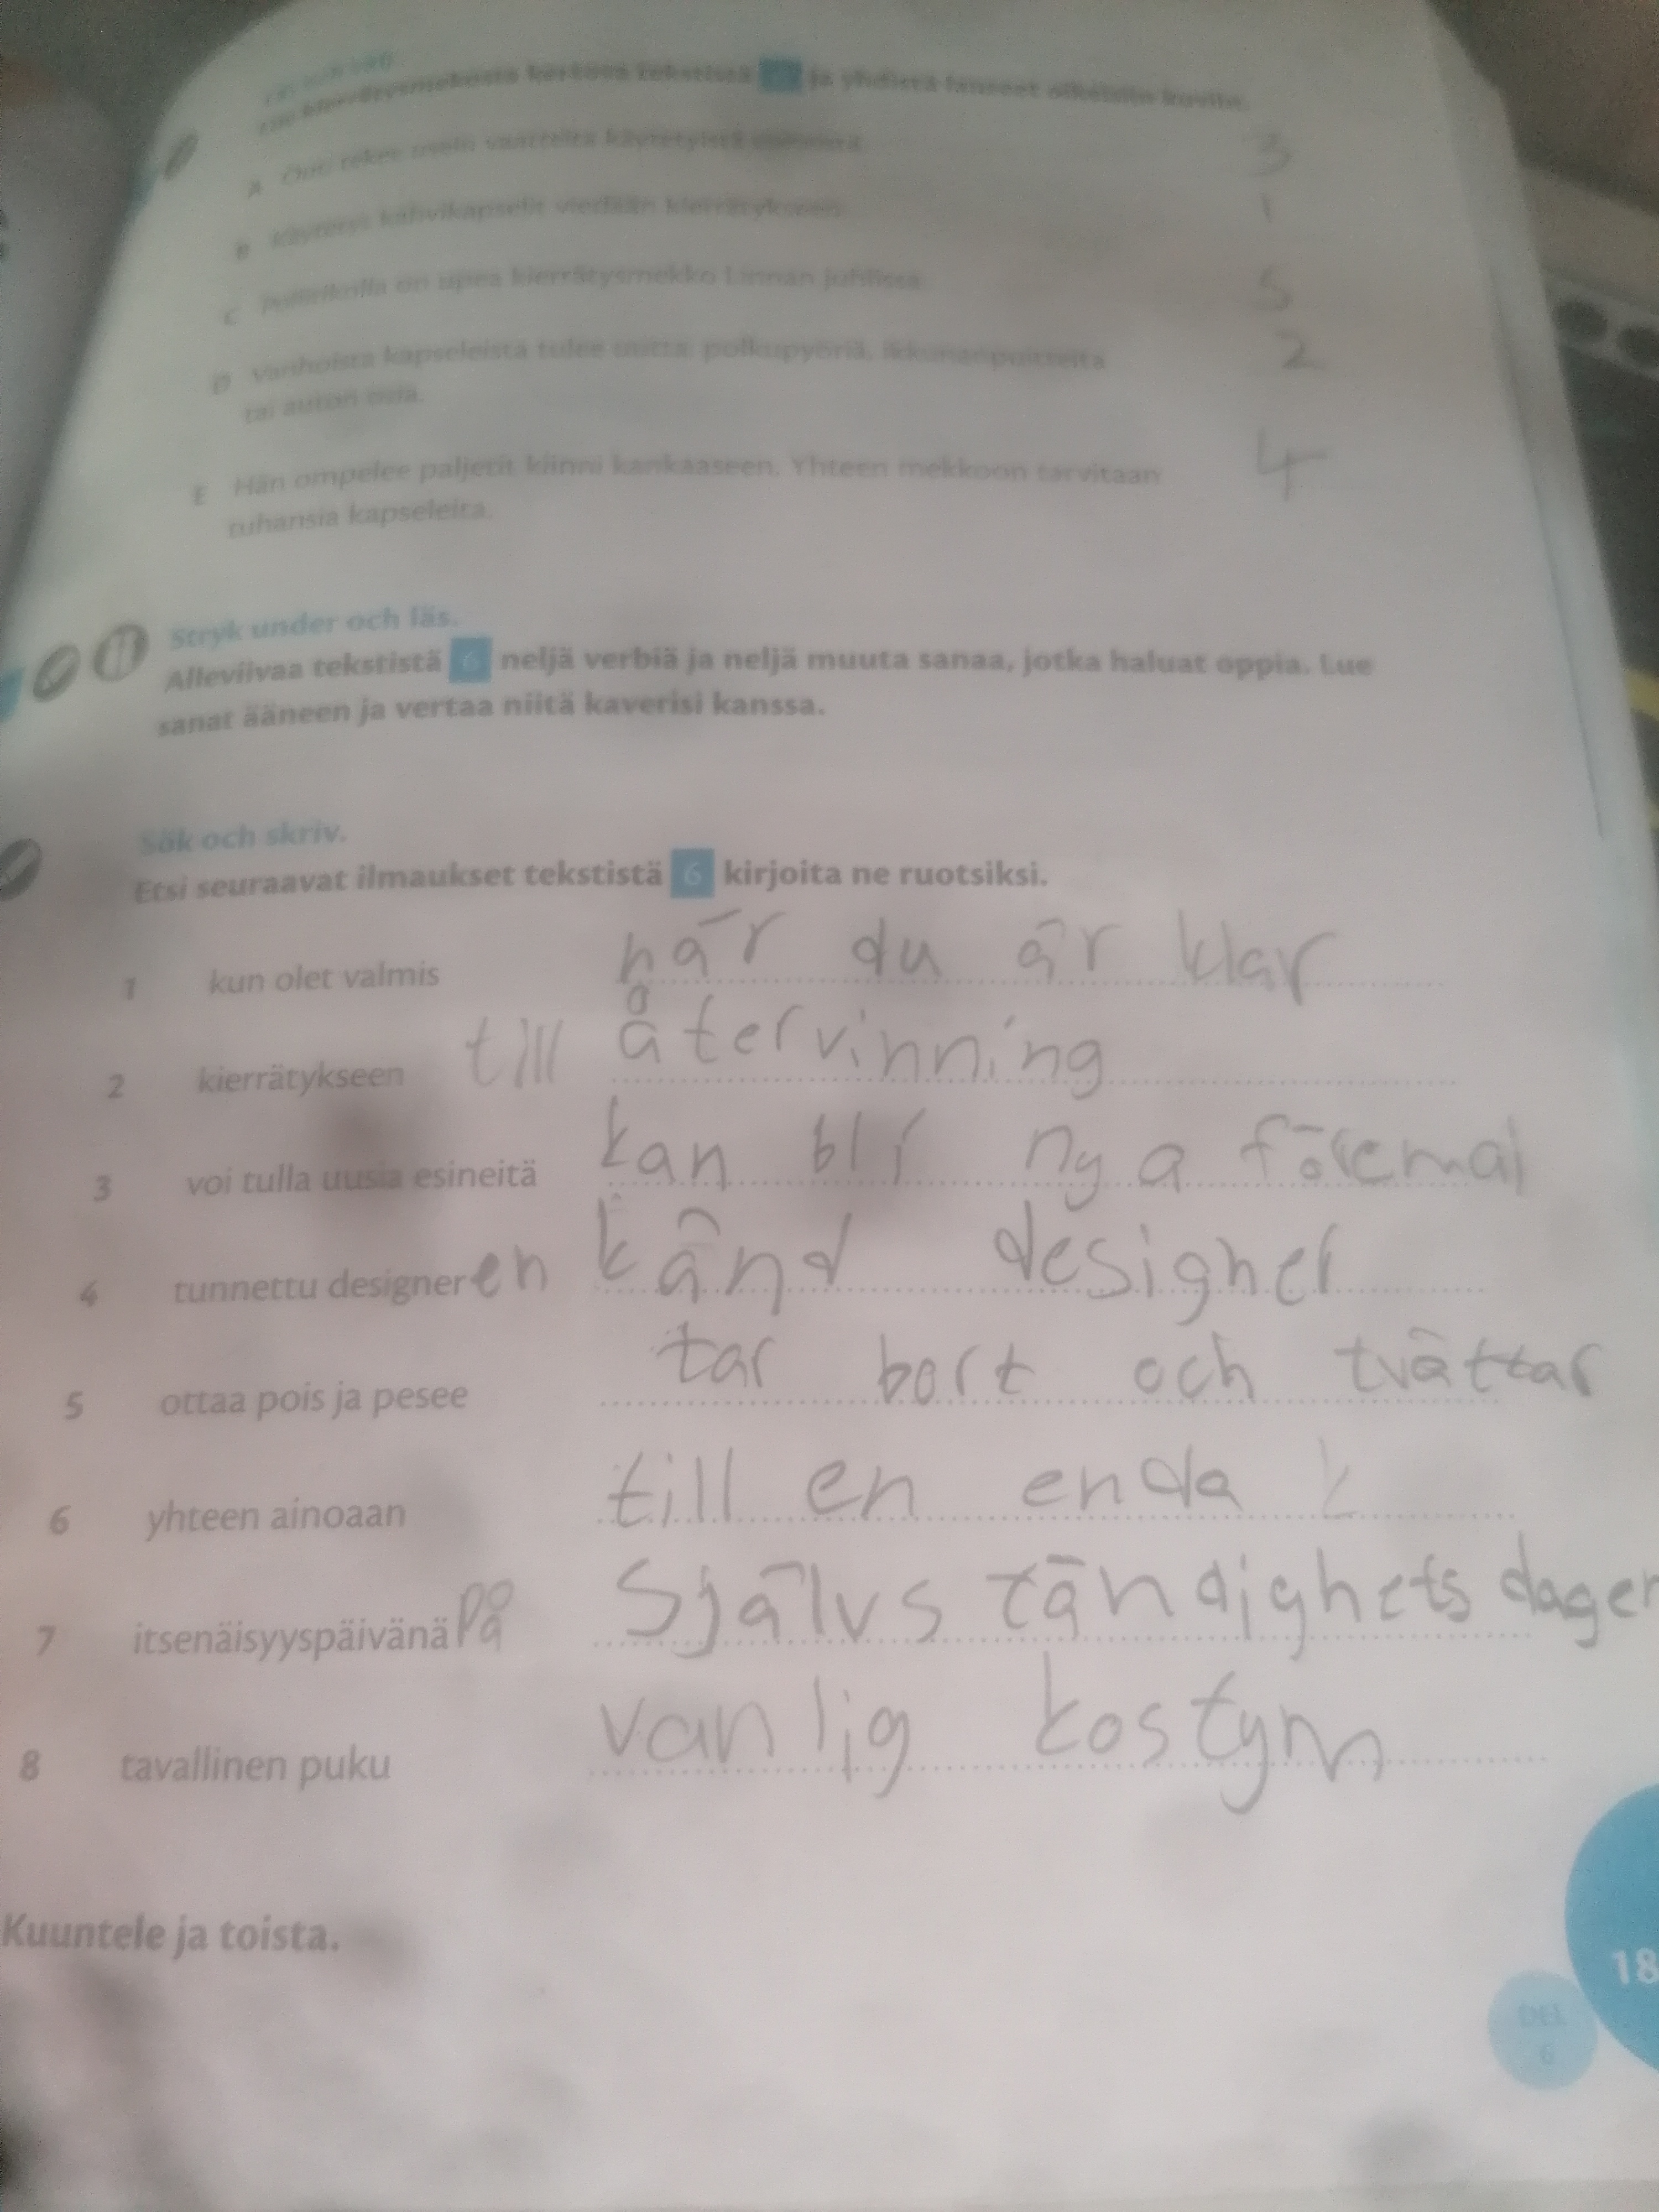 Lue kierrätysmekosta kertova tekstistä 6 ja yhdistä lauseet oikeisiin kuviin.
A Outi tekee usein vaatteita käytetyistä 3
B Käytetyt kahvikapselit viedään kierrätykseen. 1
C Poliitikolla on upea kierrätysmekko Linnan juhlissa. 5
D Vanhoista kapseleista tulee uusia polkupyöriä, ikkunanpuitteita 2
tai auton osia.
E Hän ompelee paljetit kiinni kankaaseen. Yhteen mekkoon tarvitaan 4
tuhansia kapseleita.
Stryk under och läs.
Alleviivaa tekstistä 6 neljä verbiä ja neljä muuta sanaa, jotka haluat oppia. Lue
sanat ääneen ja vertaa niitä kaverisi kanssa.
Sök och skriv.
Etsi seuraavat ilmaukset tekstistä 6 kirjoita ne ruotsiksi.
1 kun olet valmis när du är klar
2 kierrätykseen till återvinning
3 voi tulla uusia esineitä kan bli nya föremal
4 tunnettu designer en känd designer
5 ottaa pois ja pesee tar bort och tvättar
6 yhteen ainoaan till en enda
7 itsenäisyyspäivänä på självständighetsdagen
8 tavallinen puku vanlig kostym
Kuuntele ja toista.
18
DEL
6